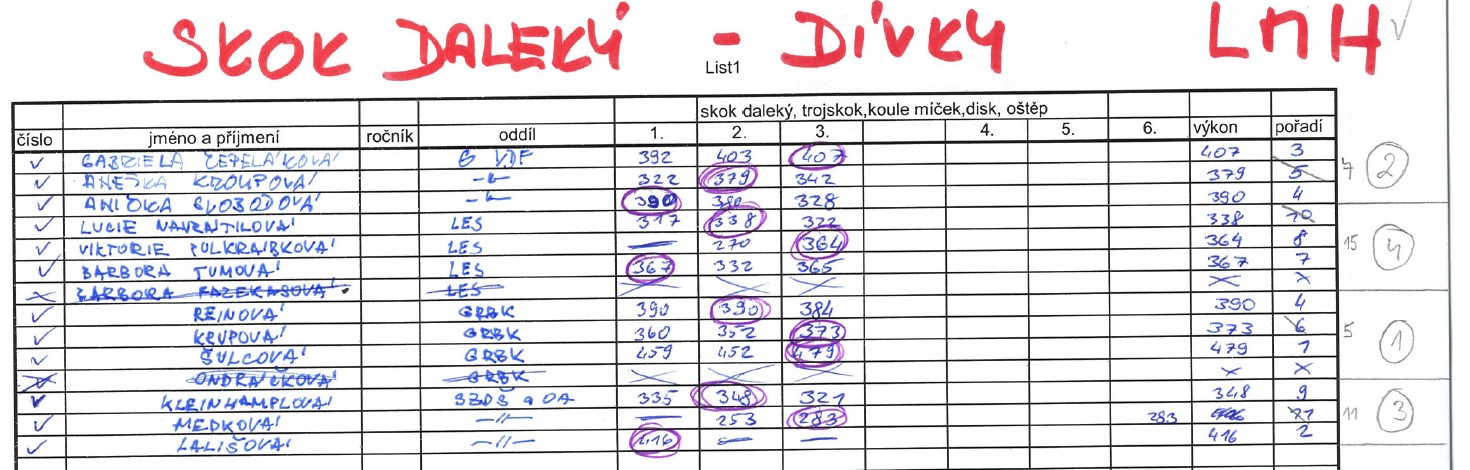 SKOK DALEKÝ - DÍVKY LMH
List1
skok daleký, trojskok,koule míček,disk, oštěp
číslo jméno a příjmení ročník oddíl 1. 2. 3. 4. 5. 6. výkon pořadí
✓ GABRIELA ČEPELÁKOVÁ G VDF 392 403 407 407 3
✓ ANEŽKA KROUPOVÁ 322 379 342 379 5 7 2
✓ ANIČKA SVOBODOVÁ 390 328 390 4
✓ LUCIE NAVRÁTILOVÁ LES 317 338 322 338 10
✓ VIKTORIE PULKRÁBKOVÁ LES — 270 364 364 8 15 4
✓ BARBORA TUMOVÁ LES 367 332 365 367 7
× BARBORA FAZEKASOVÁ LES × × × × ×
✓ REINOVÁ GRBK 390 390 384 390 4
✓ KRUPOVÁ GRBK 360 352 373 373 6 5 1
✓ ŠULCOVÁ GRBK 459 452 479 479 1
ONDRÁČKOVÁ GRBK × × × × ×
✓ KLEINHAMPLOVÁ SZDŠ a OA 335 348 321 348 9
✓ MEDKOVÁ —//— — 253 283 283 11 3
✓ LALIŠOVÁ —//— 416 — — 416 2